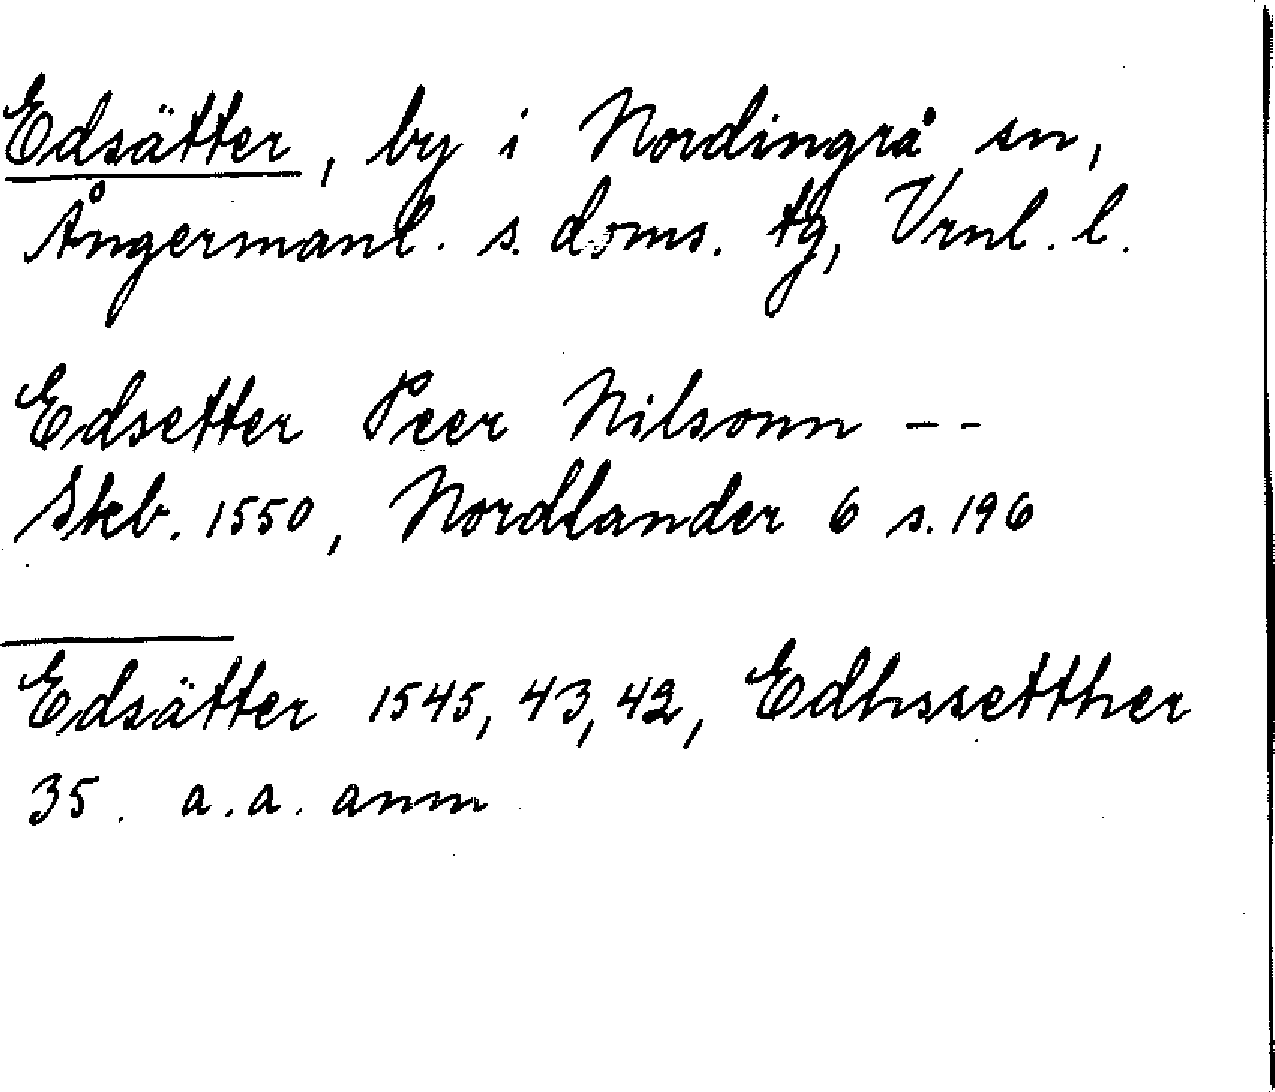 Edsätter, by i Nordingrå sn,
Ångermanl. s. doms. tg, Vrnl. l.
Edsetter Peer Nilsonn --
Skb. 1550, Nordlander 6 s. 196
Edsätter 1545, 43, 42, Edhssetther
35. a. a. anm